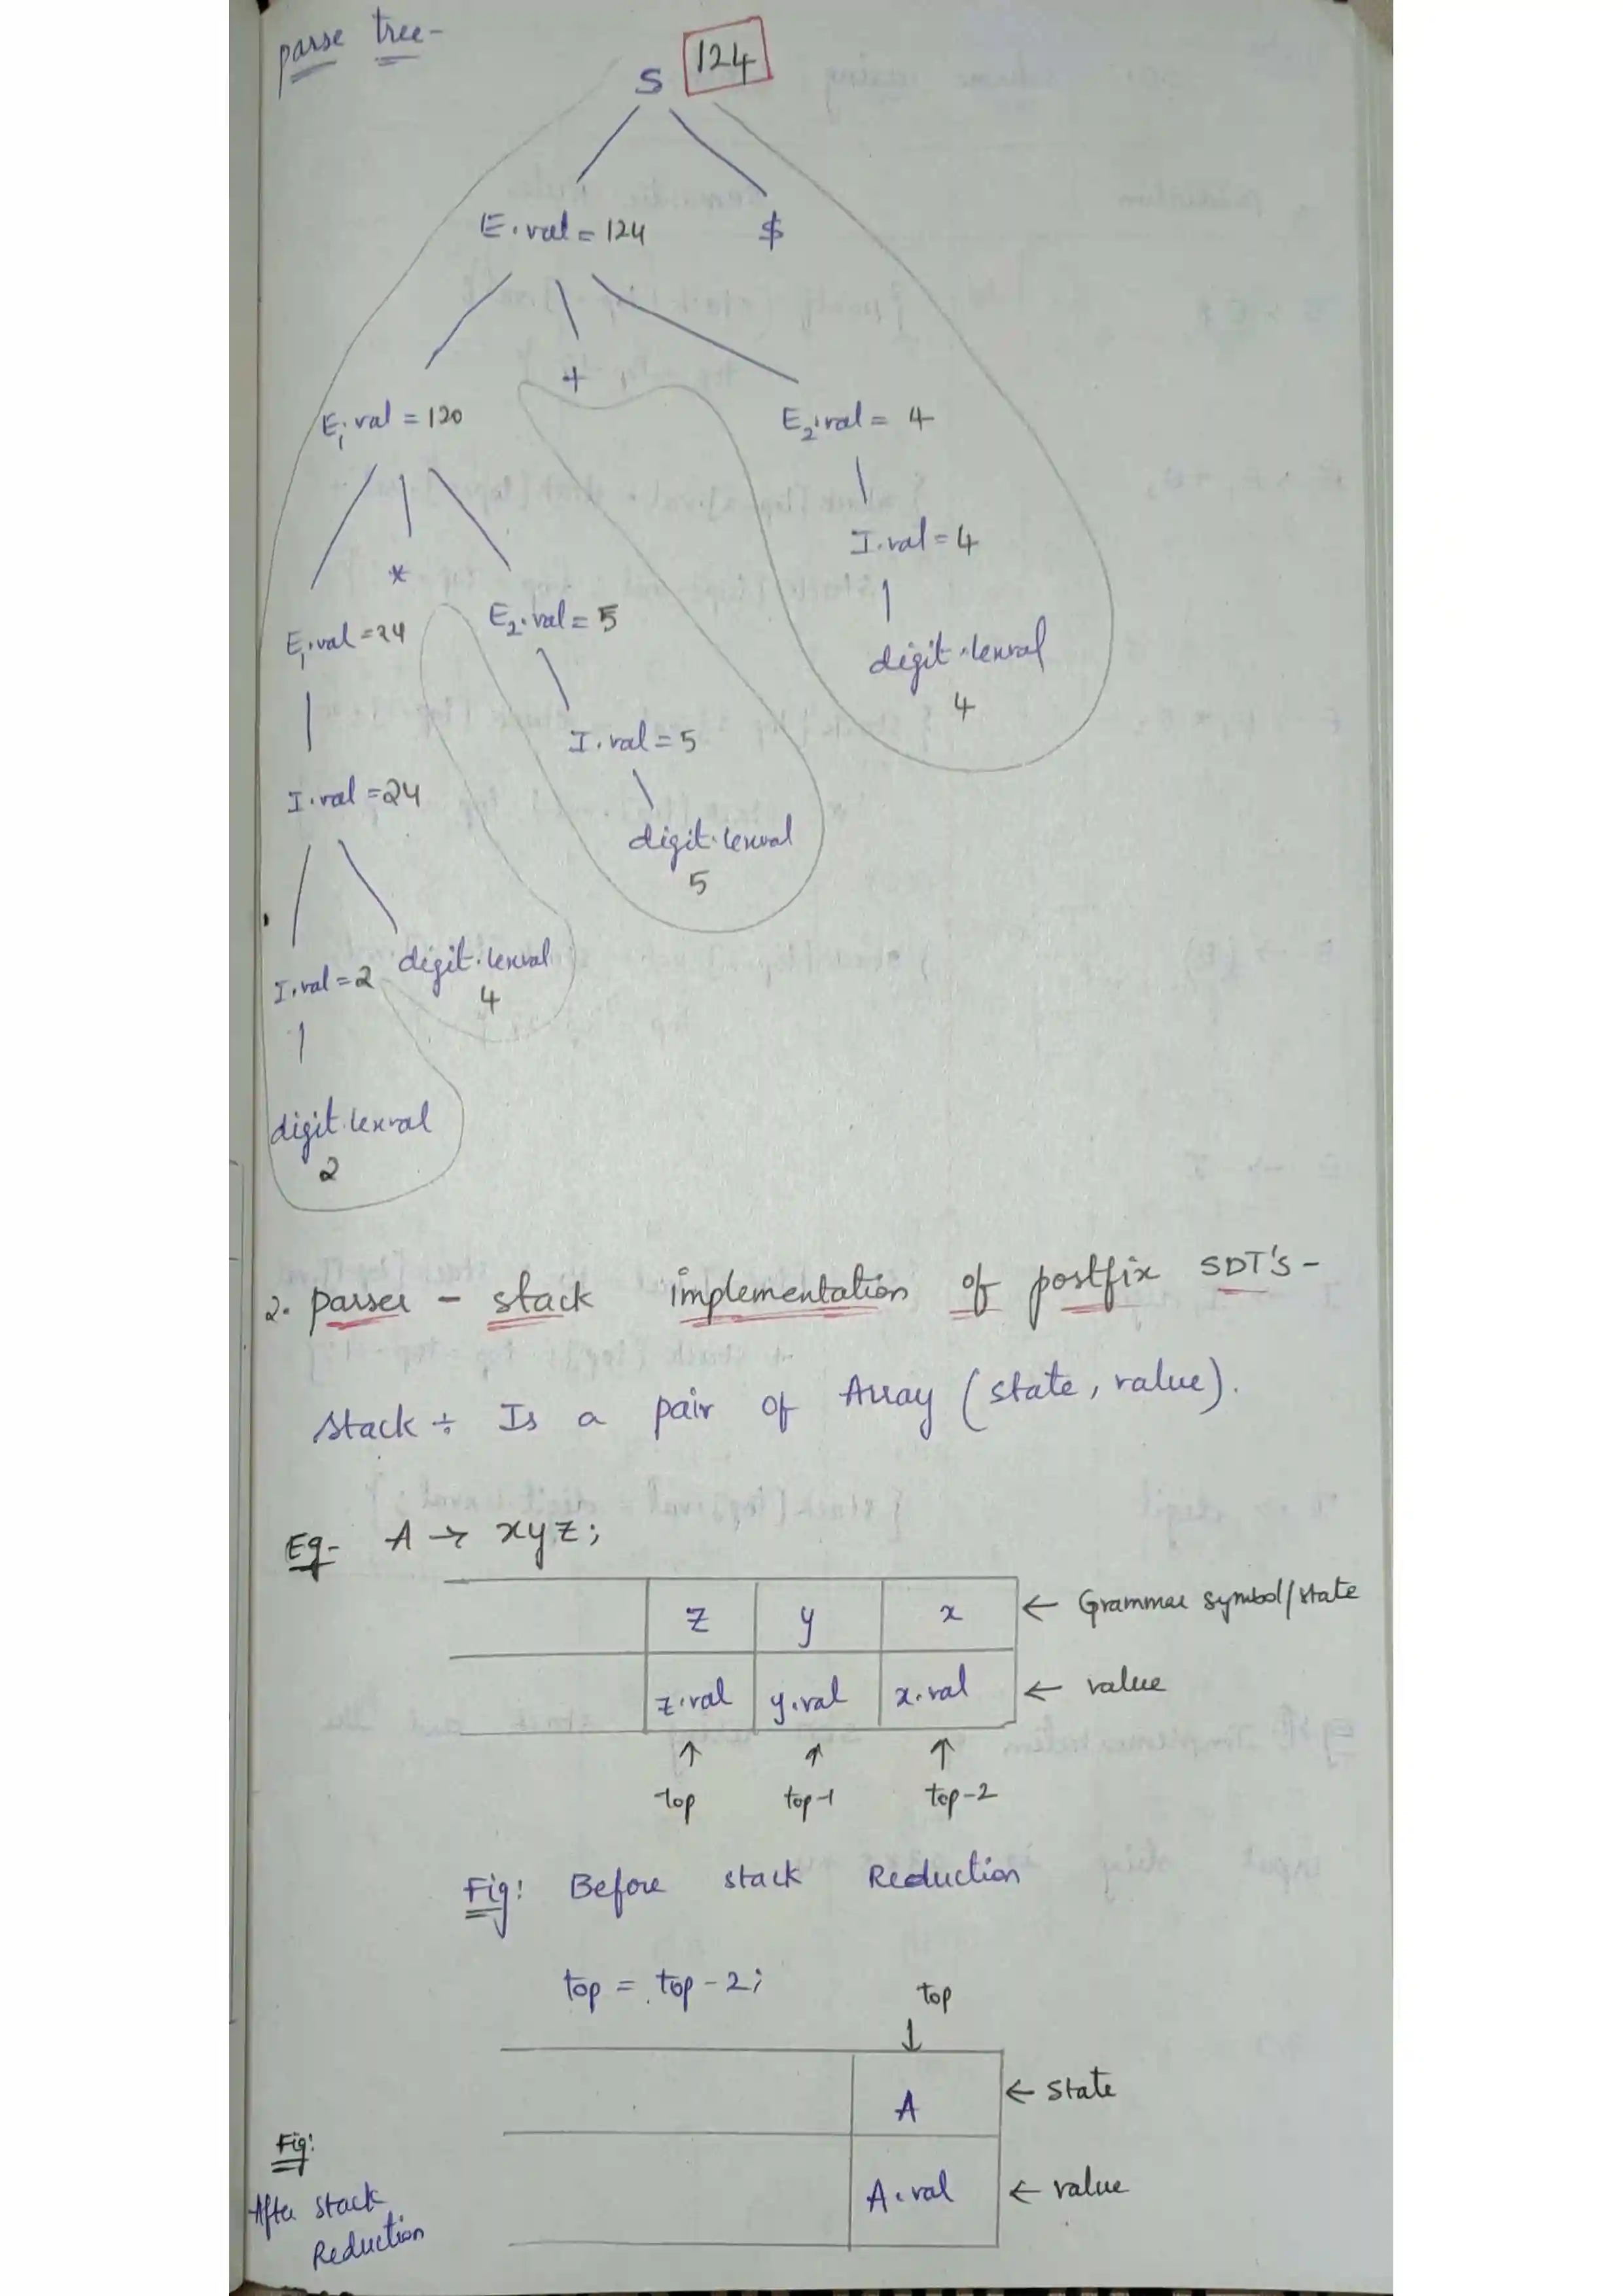 parse tree-
S 124
E.val = 124 $
+
E1.val = 120 E2.val = 4
I.val = 4
*
E1.val = 24 E2.val = 5
digit.lexval
4
I.val = 5
I.val = 24
digit.lexval
5
I.val = 2 digit.lexval
4
digit.lexval
2
2. parser - stack implementation of postfix SDT's -
Stack ÷ Is a pair of Array (state, value).
Eg- A → xyz;
z y x ← Grammar symbol/state
z.val y.val x.val ← value
↑ ↑ ↑
top top-1 top-2
Fig: Before stack Reduction
top = top-2; top
↓
A ← state
Fig:
A.val ← value
After stack
Reduction